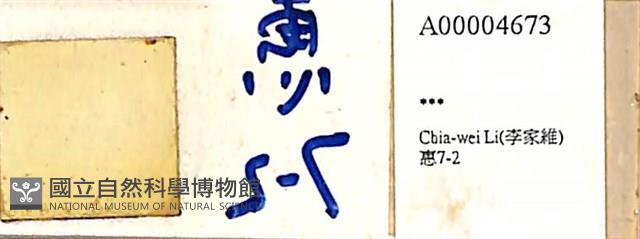 惠
7-2
A00004673
***
Chia-wei Li(李家維)
惠7-2
國立自然科學博物館
NATIONAL MUSEUM OF NATURAL SCIENCE